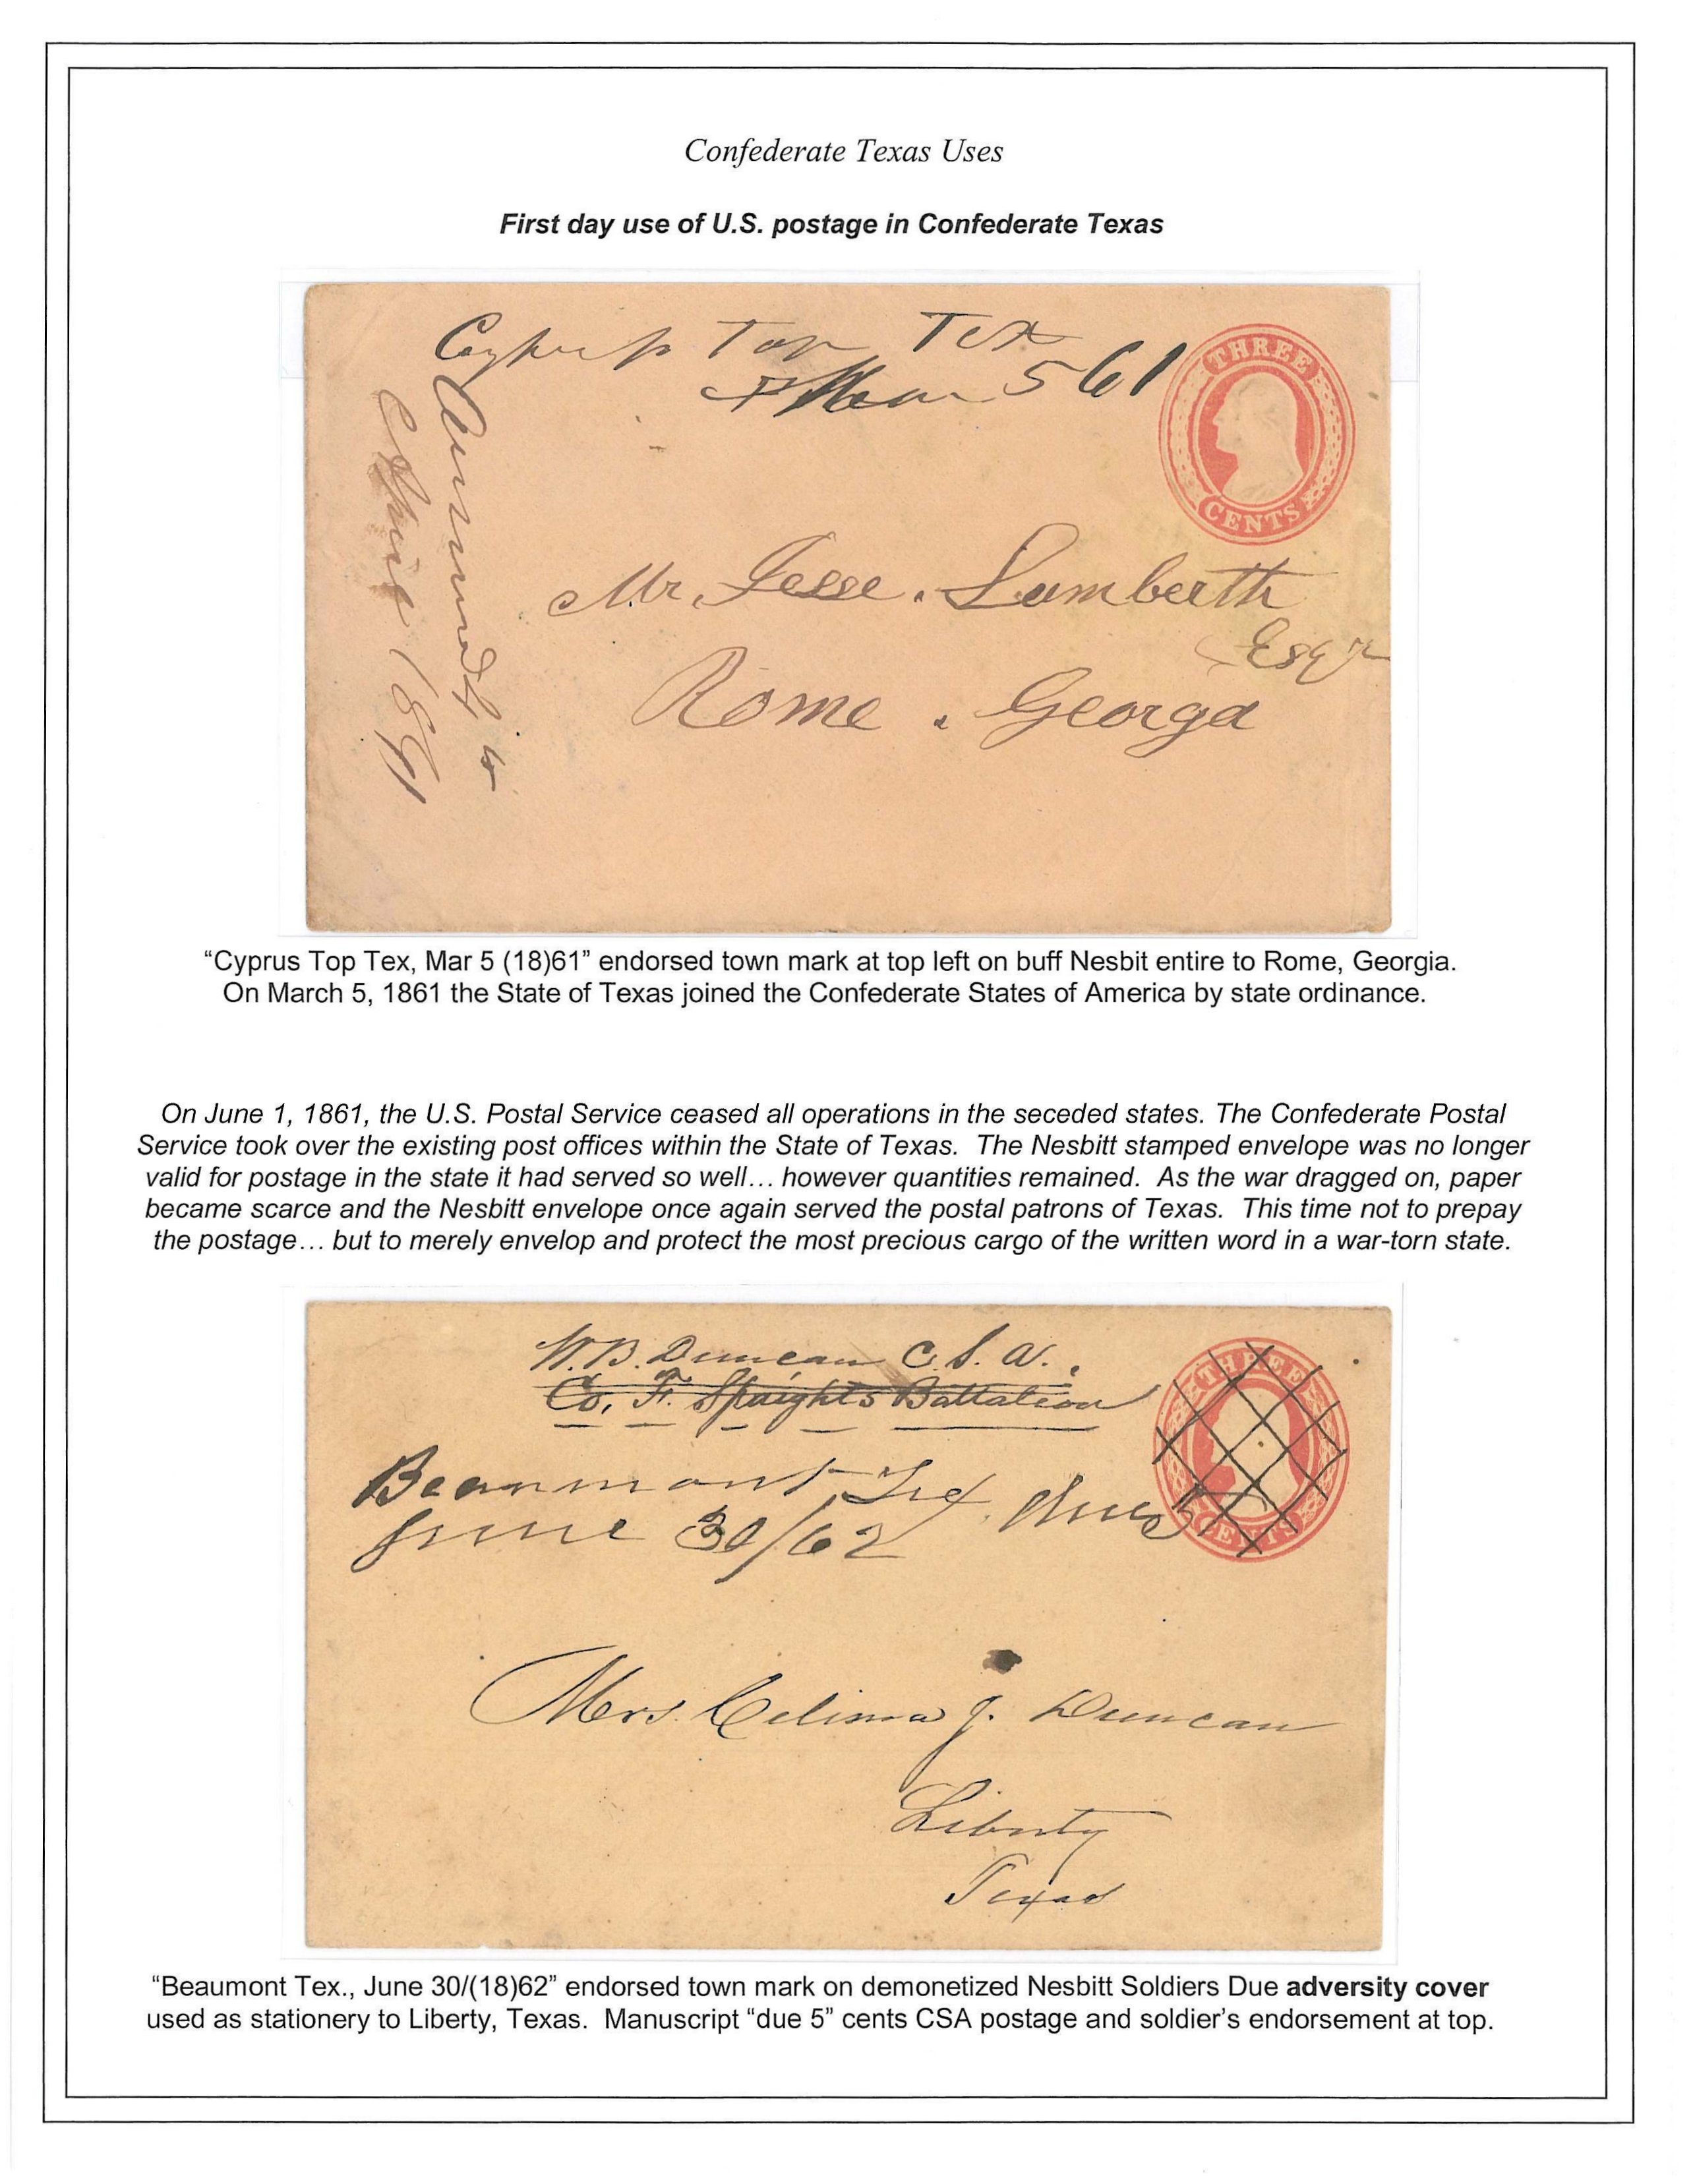 Confederate Texas Uses
First day use of U.S. postage in Confederate Texas
Cyprus Top Tex
Mar 5 61
THREE
CENTS
Mr. Jesse. Lumberth
Esqr
Rome. Georga
“Cyprus Top Tex, Mar 5 (18)61” endorsed town mark at top left on buff Nesbit entire to Rome, Georgia.
On March 5, 1861 the State of Texas joined the Confederate States of America by state ordinance.
On June 1, 1861, the U.S. Postal Service ceased all operations in the seceded states. The Confederate Postal
Service took over the existing post offices within the State of Texas. The Nesbitt stamped envelope was no longer
valid for postage in the state it had served so well… however quantities remained. As the war dragged on, paper
became scarce and the Nesbitt envelope once again served the postal patrons of Texas. This time not to prepay
the postage… but to merely envelop and protect the most precious cargo of the written word in a war-torn state.
W.B. Duncan C.S.A.
Co. F. Spaights Battalion
THREE
Beaumont Tex due 5
June 30/62
CENTS
Mrs. Celima J. Duncan
Liberty
Texas
“Beaumont Tex., June 30/(18)62” endorsed town mark on demonetized Nesbitt Soldiers Due adversity cover
used as stationery to Liberty, Texas. Manuscript “due 5” cents CSA postage and soldier’s endorsement at top.